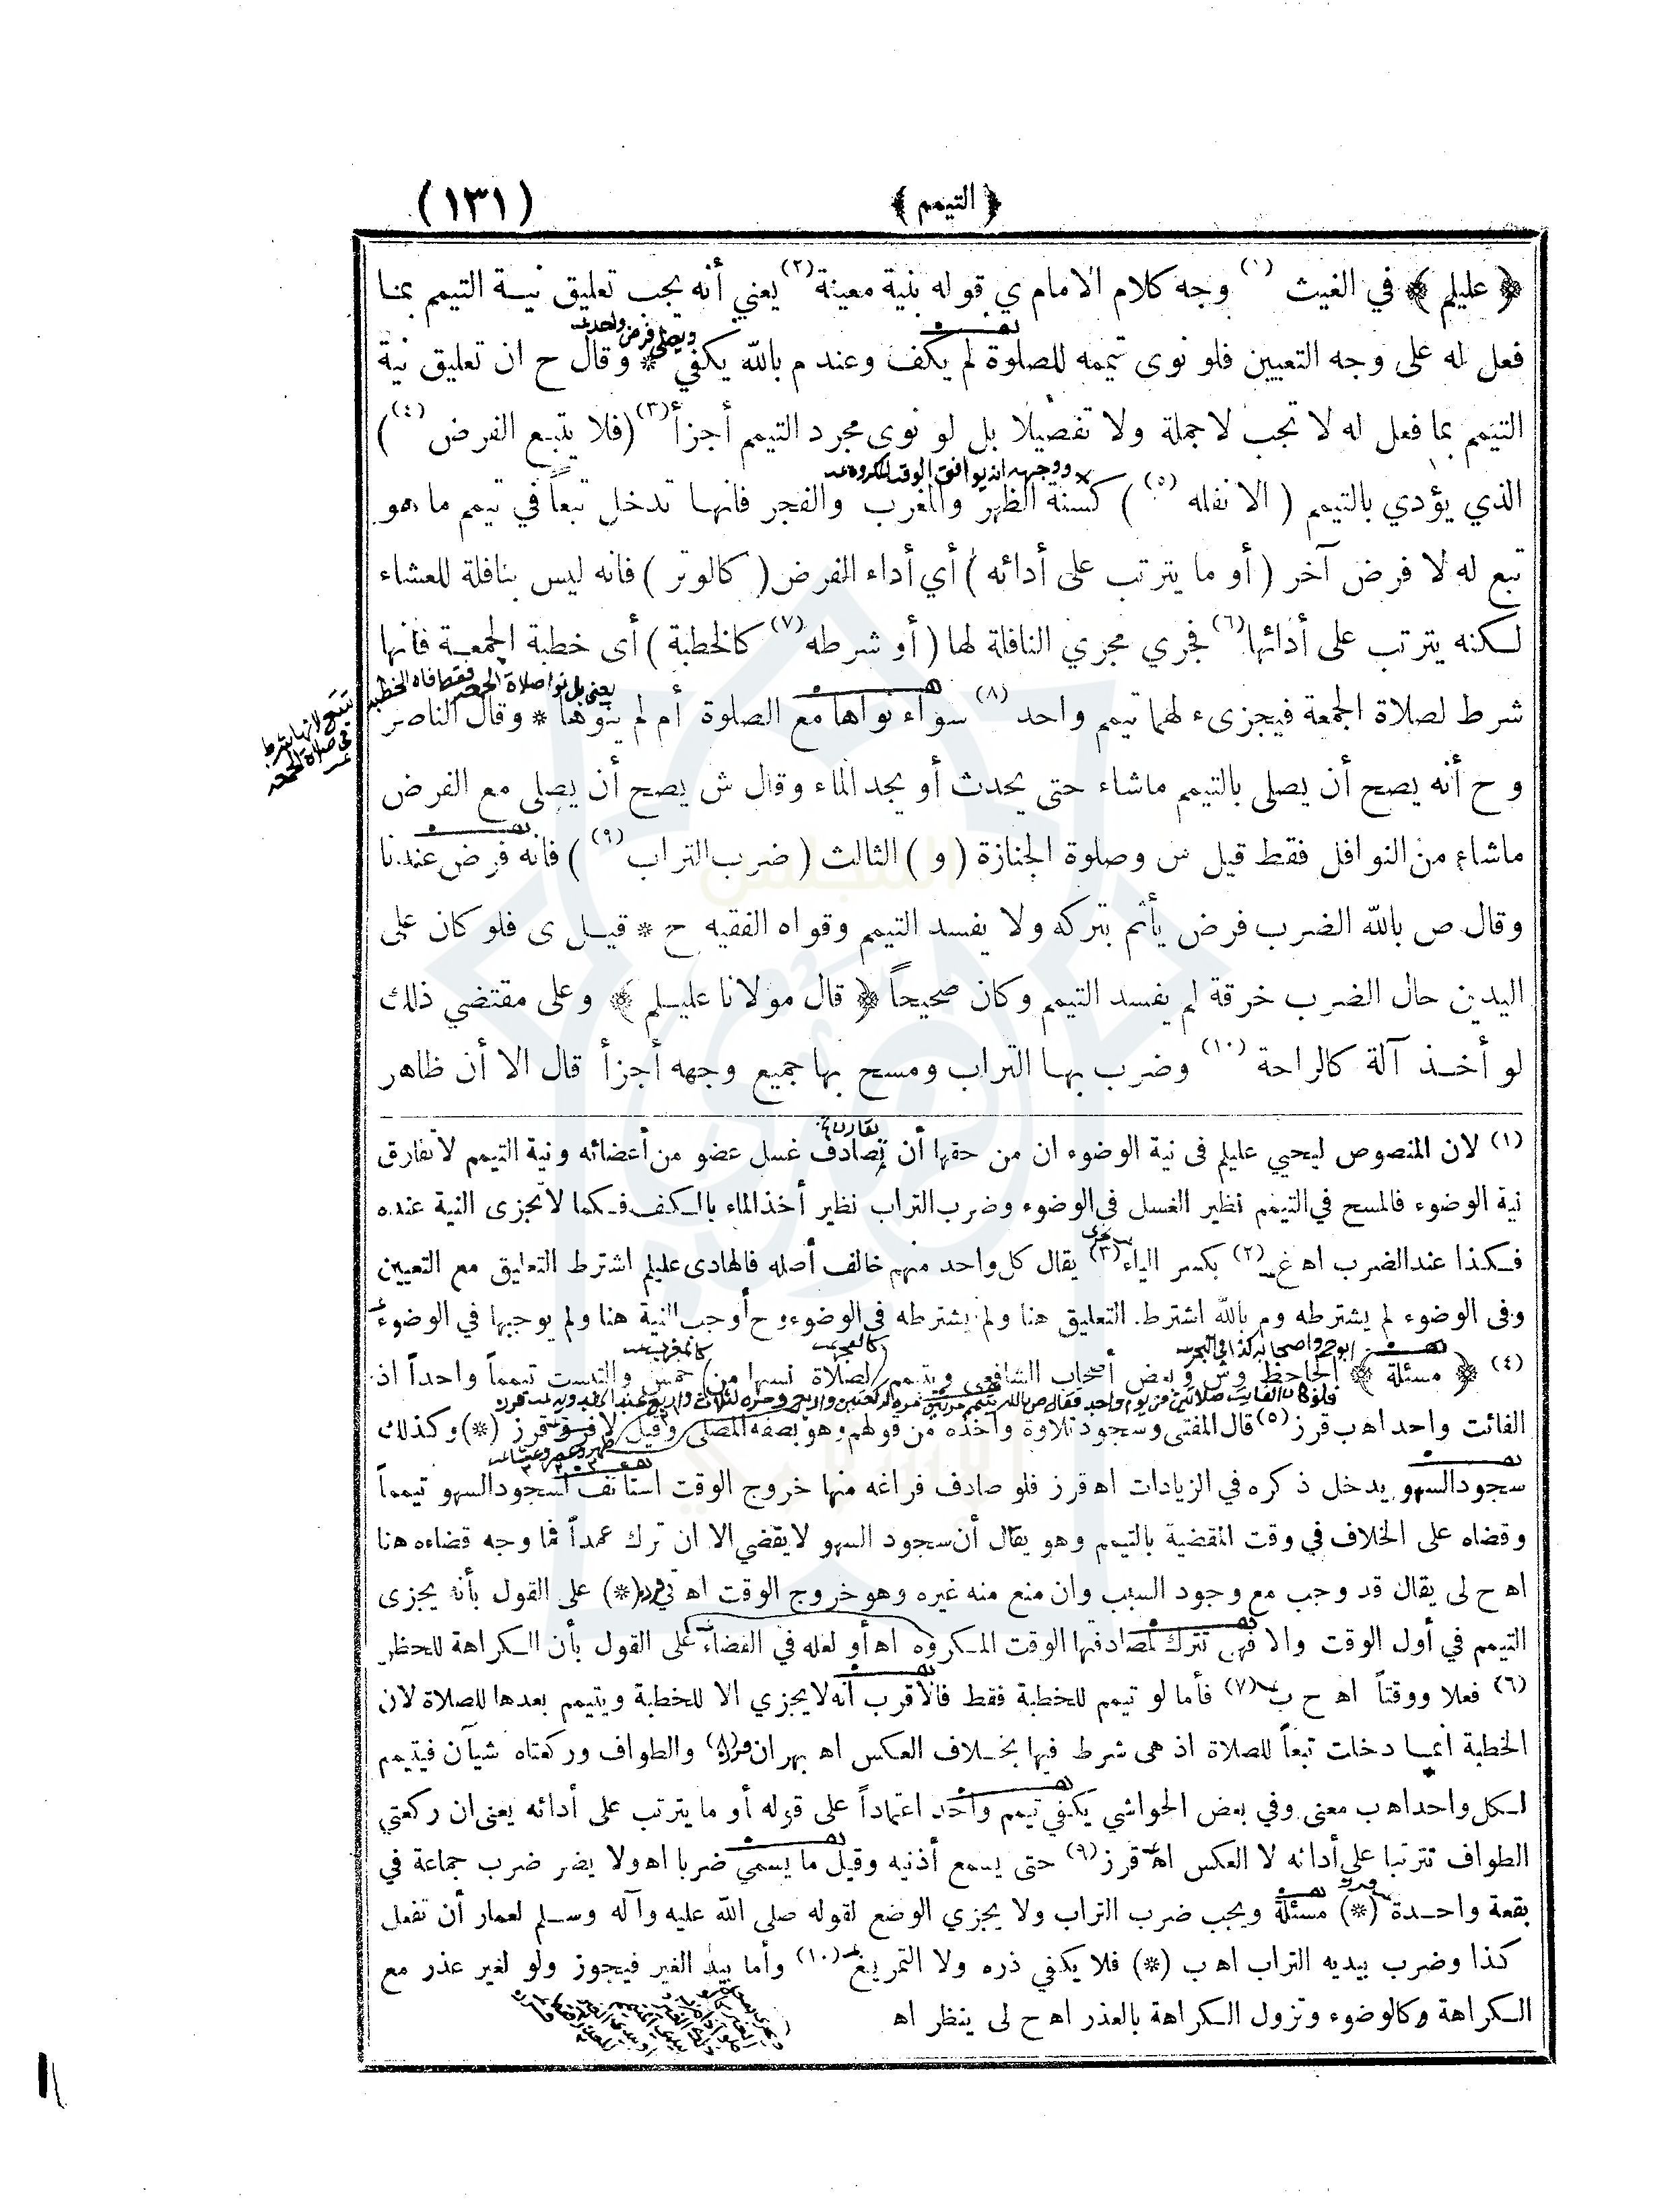 ﴿ التيمم ﴾
(١٣١)
﴿ عليلم ﴾ في الغيث (١) وجه كلام الامام ي قوله بنية معينة (٢) يعني أنه يجب تعليق نيـة التيمم بمـا
فعل له على وجه التعيين فلو نوى تيممه للصلوة لم يكف وعند م بالله يكفي * وقال ح ان تعليق نية
ويصلي فرض واحد
التيمم بما فعل له لا تجب لا جملة ولا تفصيلا بل لو نوى مجرد التيمم أجزأ (٣) (فلا يتبع الفرض (٤))
الذي يؤدي بالتيمم ( الا نفله (٥) ) كسنة الظهر والمغرب والفجر فانهـا تدخل تبعاً في تيمم ما هو
ووجهه انه يوافق الوقت المكروه
تبع له لا فرض آخر ( أو ما يترتب على أدائه ) أي أداء الفرض ( كالوتر ) فانه ليس بنافلة للعشاء
لـكنه يترتب على أدائها (٦) فجري مجري النافلة لها ( أو شرطه (٧) كالخطبة ) أى خطبة الجمعـة فانها
شرط لصلاة الجمعة فيجزىء لهما تيمم واحد (٨) سوآء نواها مع الصلوة أم لم ينوها * وقال الناصر
يعني بل نوا صلاة الجمعه فقط فان الخطبه
تتبع لانها شرط
في صلاة الجمعه
و ح أنه يصح أن يصلى بالتيمم ماشاء حتى يحدث أو يجد الماء وقال ش يصح أن يصلى مع الفرض
ماشاء من النوافل فقط قيل س وصلوة الجنازة ( و ) الثالث ( ضرب التراب (٩) ) فانه فرض عندنا
وقال ص بالله الضرب فرض يأثم بتركه ولا يفسد التيمم وقواه الفقيه ح * قيـل ى فلو كان على
اليدين حال الضرب خرقة لم يفسد التيمم وكان صحيحاً ﴿ قال مولانا عليـلم ﴾ وعلى مقتضي ذلك
لو أخـذ آلة كالراحة (١٠) وضرب بهـا التراب ومسح بها جميع وجهه أجزأ قال الا أن ظاهر
(١) لان المنصوص ليحيي عليلم فى نية الوضوء ان من حقها أن تصادف غسل عضو من أعضائه ونية التيمم لا تفارق
تقارن
نية الوضوء فالمسح في التيمم نظير الغسل فى الوضوء وضرب التراب نظير أخذ الماء بالـكف فـكما لا تجزى النية عنده
فـكذا عند الضرب اه غ (٢) بكسر الياء (٣) يقال كل واحد منهم خالف أصله فالهادى عليلم اشترط التعليق مع التعيين
وفى الوضوء لم يشترطه وم بالله اشترط التعليق هنا ولم يشترطه فى الوضوء وح أوجب النية هنا ولم يوجبها في الوضوء
(٤) ﴿ مسئلة ﴾ الجاحظ وش وبعض أصحاب الشافعي ويتيمم لصلاة نسيها من خمس والتبست تيمماً واحداً اذ
الفائت واحد اه ب قرز (٥) قال المفتى وسجود تلاوة وأخذه من قولهم وهو بصفة المصلى وقيل لا فرق قرز (*) وكذلك
سجود السهو يدخل ذكره في الزيادات اه قرز فلو صادف فراغه منها خروج الوقت استأنف لسجود السهو تيمماً
وقضاه على الخلاف في وقت المقضية بالتيمم وهو يقال أن سجود السهو لا يقضي الا ان ترك عمداً فما وجه قضاءه هنا
اه ح لى يقال قد وجب مع وجود السبب وان منع منه غيره وهو خروج الوقت اه (*) على القول بأنه يجزى
التيمم في أول الوقت والا فهي تترك لمصادفتها الوقت المـكروه اه أو لعله في القضاء على القول بأن الـكراهة للحظر
(٦) فعلا ووقتاً اه ح ب (٧) فأما لو تيمم للخطبة فقط فالأقرب أنه لا يجزي الا للخطبة ويتيمم بعدها للصلاة لان
الخطبة انمـا دخلت تبعاً للصلاة اذ هى شرط فيها بخـلاف العكس اه بهران (٨) والطواف وركعتاه شيآن فيتيمم
لـكل واحد اه ب معنى وفي بعض الحواشي يكفي تيمم واحد اعتماداً على قوله أو ما يترتب على أدائه يعنى ان ركعتي
الطواف تترتبا على أدائه لا العكس اه قرز (٩) حتى يسمع أذنيه وقيل ما يسمي ضربا اه ولا يضر ضرب جماعة في
بقعة واحـدة (*) مسئلة ويجب ضرب التراب ولا يجزي الوضع لقوله صلى الله عليه وآله وسـلم لعمار أن تفعل
كذا وضرب بيديه التراب اه ب (*) فلا يكفي ذره ولا التمريغ (١٠) وأما بيد الغير فيجوز ولو لغير عذر مع
الـكراهة وكالوضوء وتزول الـكراهة بالعذر اه ح لى ينظر اه